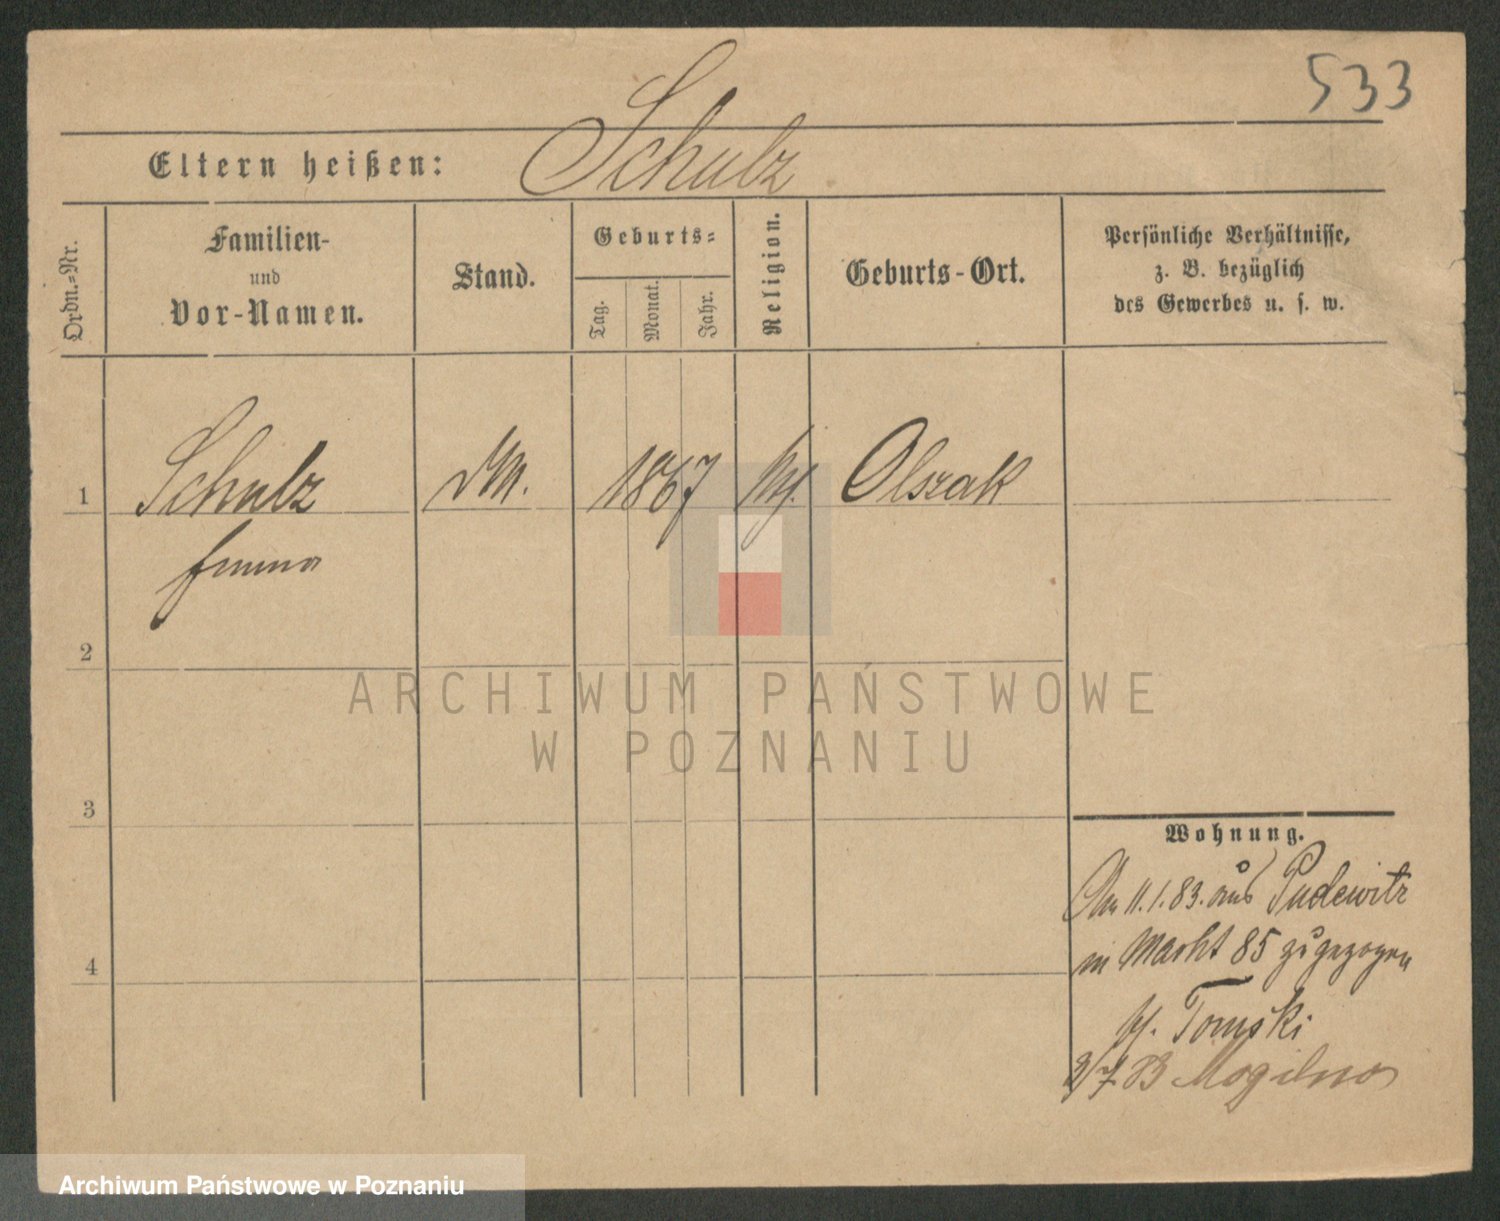 533
Schulz
Eltern heißen:
Ordn.-Nr.
Familien-
und
Vor-Namen.
Stand.
Geburts-
Tag.
Monat.
Jahr.
Religion.
Geburts-Ort.
Persönliche Verhältnisse,
z. B. bezüglich
des Gewerbes u. s. w.
1
Schulz
1867
Olszak
Emma
2
ARCHIWUM PAŃSTWOWE
W POZNANIU
3
Wohnung.
Am 11.1.83. aus Pudewitz
in Markt 85 zugezogen
Tomski
4
3/7 83 Mogilno
Archiwum Państwowe w Poznaniu